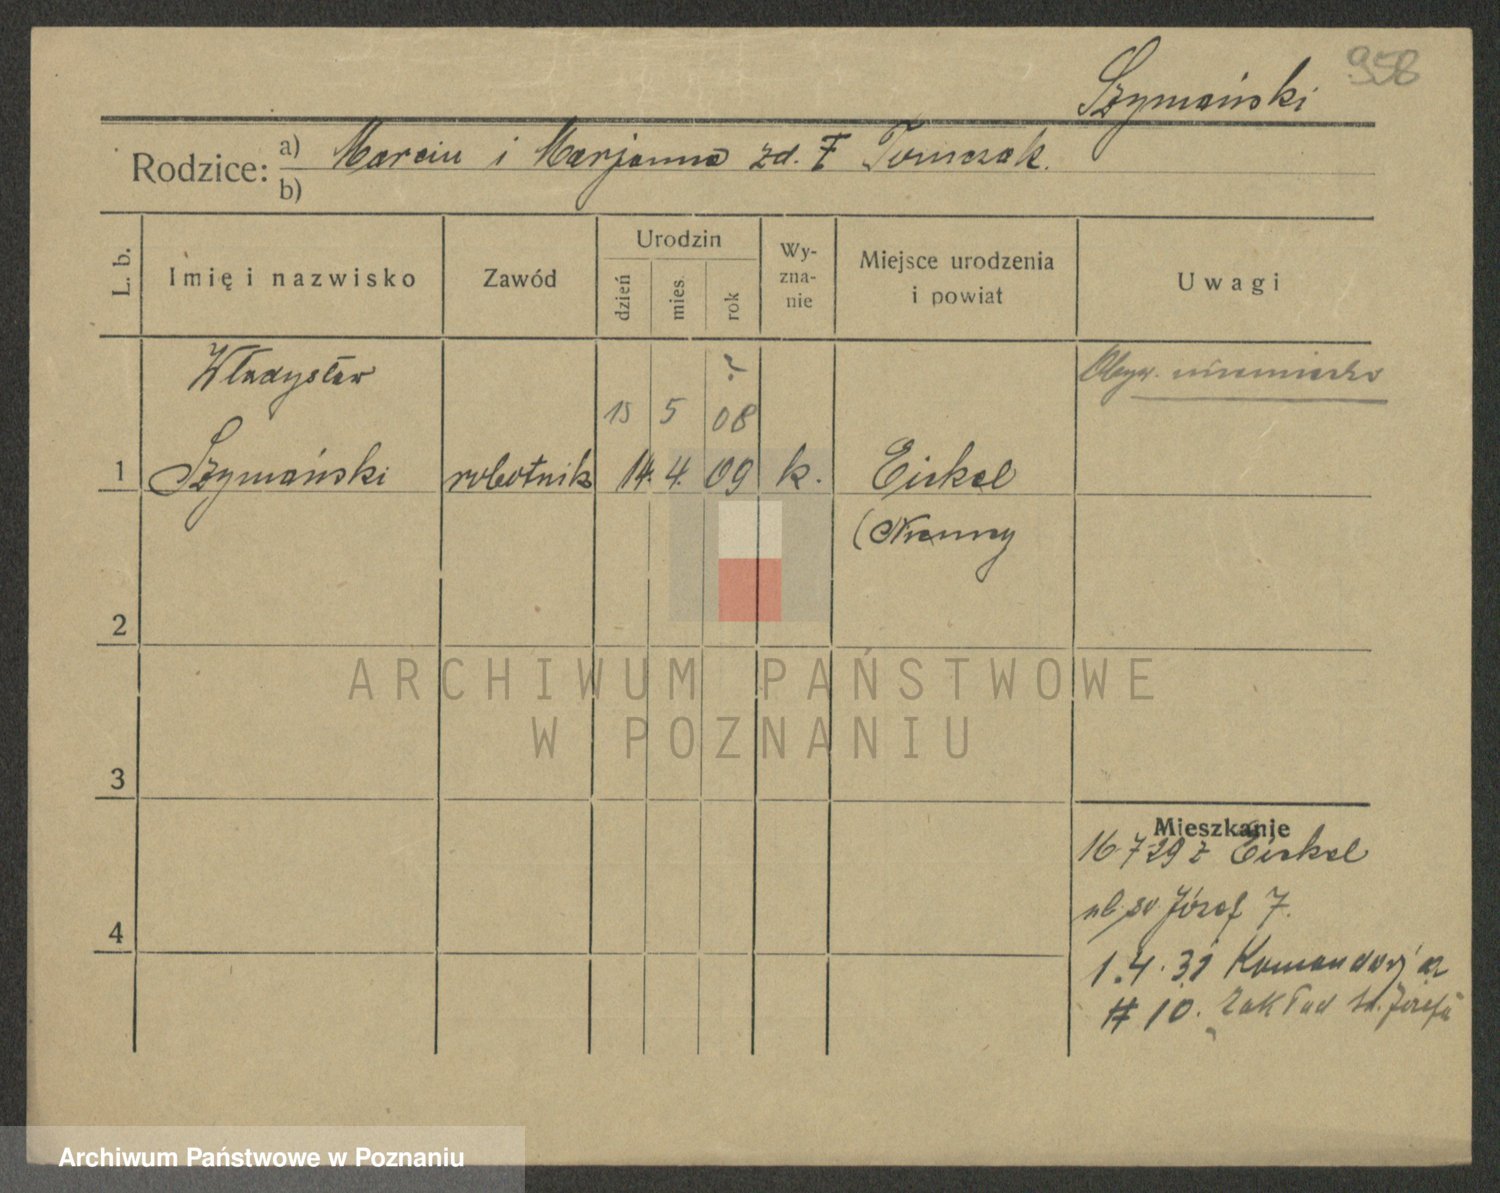 Szymański 958
Rodzice: a) Marcin i Marjanna zd. F Tomczak.
b)
L. b. Imię i nazwisko Zawód Urodzin dzień mies. rok Wy-zna-nie Miejsce urodzenia i powiat Uwagi
Władysław ? Obyw. niemiecko
15 5 08
1 Szymański robotnik 14. 4. 09 k. Eickel
(Niemcy
2
ARCHIWUM PAŃSTWOWE
W POZNANIU
3
Mieszkanie
16 7 29 z Eickel
ul. św Józef 7.
4
1.4.31 Komandorja
# 10. Zakład św. Józefa
Archiwum Państwowe w Poznaniu